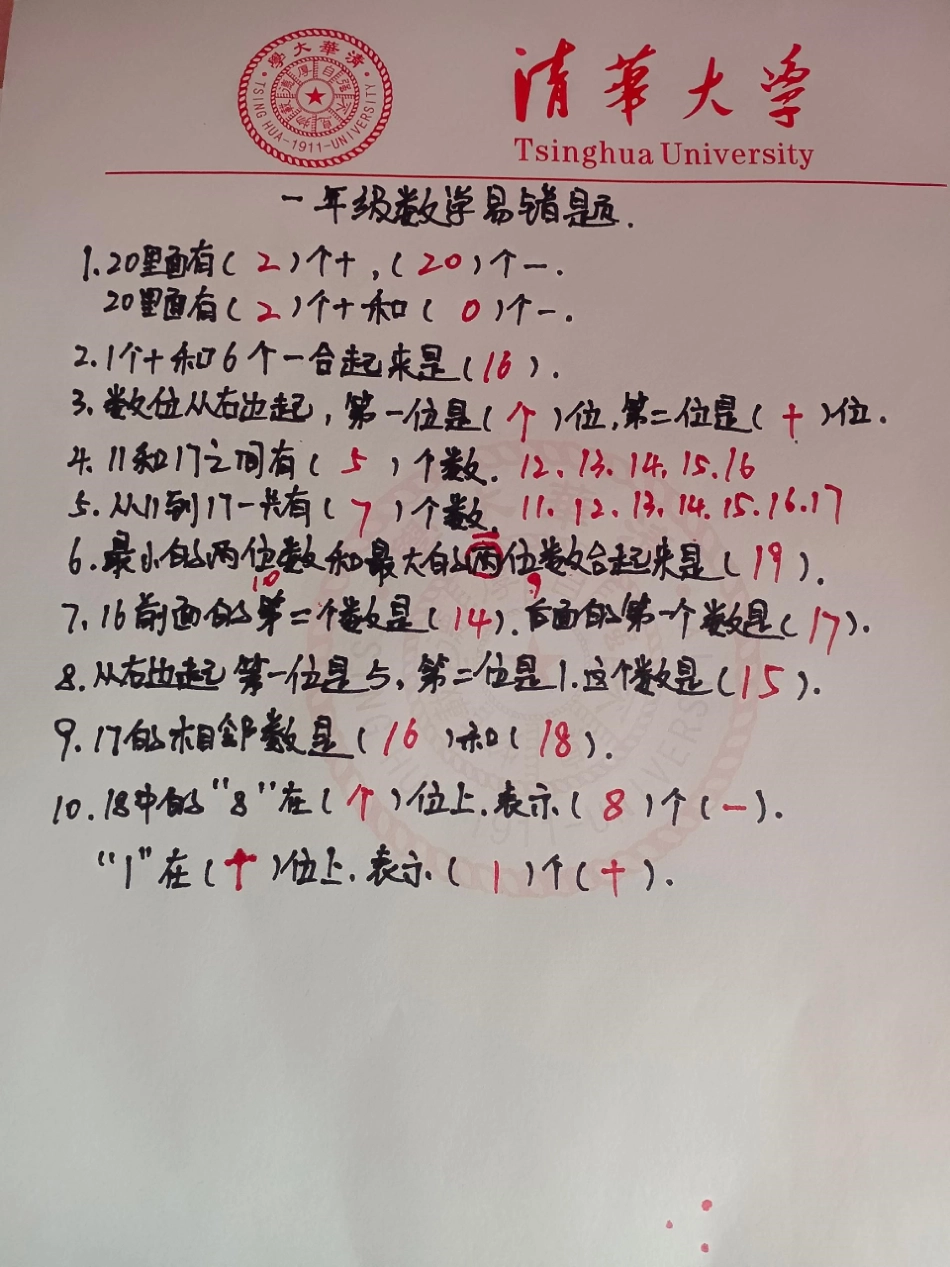 清華大學
·TSINGHUA-1911-UNIVERSITY·
清華大学
Tsinghua University
一年级数学易错题.
1.20里面有(2)个十,(20)个一.
20里面有(2)个十和(0)个一.
2.1个十和6个一合起来是(16).
3.数位从右边起,第一位是(个)位,第二位是(十)位.
4.11和17之间有(5)个数. 12、13、14、15、16
5.从11到17一共有(7)个数. 11、12、13、14、15、16、17
6.最小的两位数和最大的两位数合起来是(19).
10 一 9
7.16前面的第二个数是(14).后面的第一个数是(17).
8.从右边起第一位是5,第二位是1.这个数是(15).
9.17的相邻数是(16)和(18).
10.18中的“8”在(个)位上.表示(8)个(一).
“1”在(十)位上.表示(1)个(十).